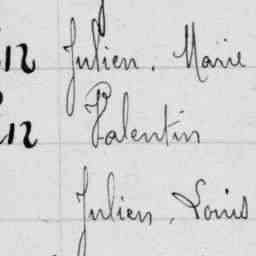 Julien. Marie
Valentin
Julien, Louis